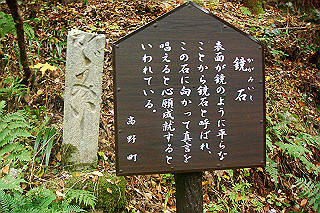 鏡石
かがみいし
表面が鏡のように平らな
ことから鏡石と呼ばれ、
この石に向かって真言を
唱えると心願成就すると
いわれている。
高野町